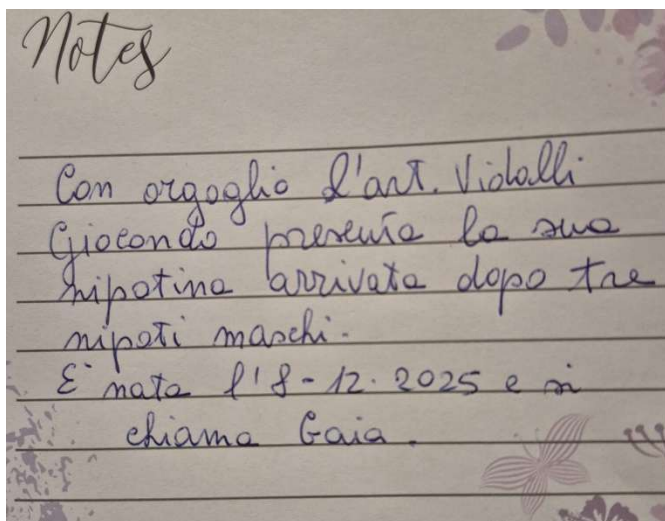 Notes
Con orgoglio l'art. Vidalli
Giocondo presenta la sua
nipotina arrivata dopo tre
nipoti maschi.
E' nata l'8-12.2025 e si
chiama Gaia.